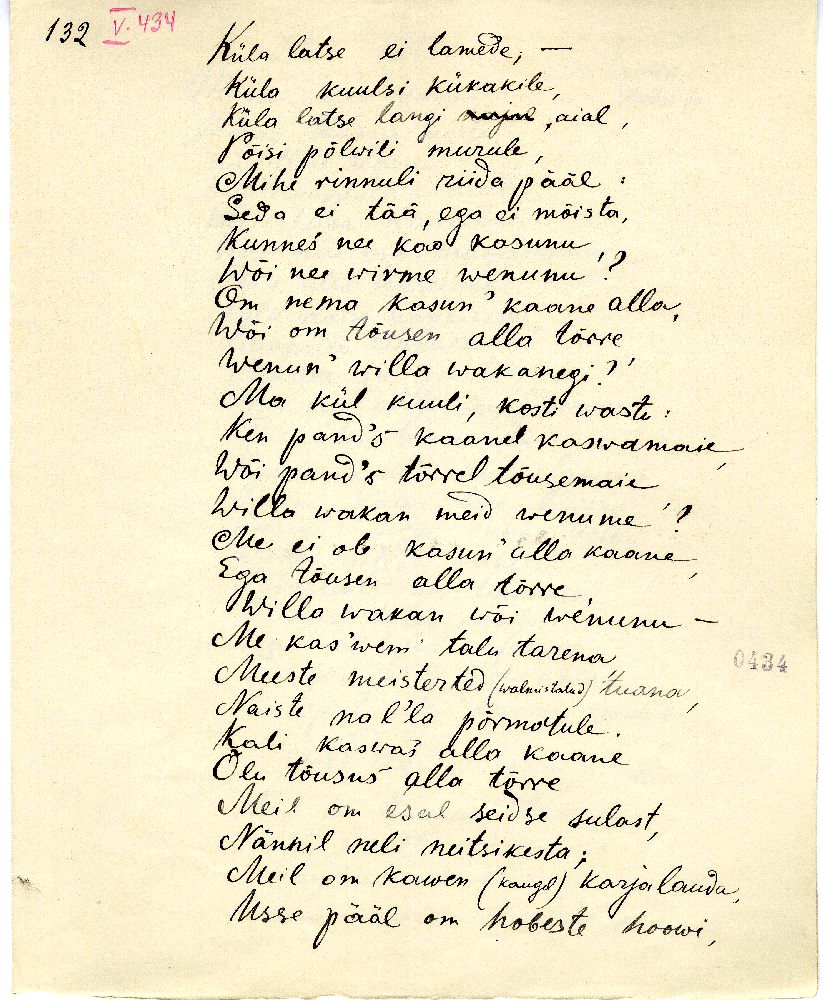 132 V. 434
Küla latse ei lamede, —
Küla kuulsi kükakile,
Küla latse langi aial,
Põisi põlwili murule,
Mihe rinnuli riida pääl:
Seda ei tää, ega ei mõista,
Kunnes nee kao kasunu,
Wõi nee wirme wenunu'?
Om nema kasun' kaane alla,
Wõi om tõusen alla tõrre
Wenun' willa wakanegi?'
Ma kül kuuli, kosti wastu:
Ken pand's kaanel kaswamaie,
Wõi pand's tõrrel tõusemaie
Willa wakan meid wenume'?
Me ei ole kasun' alla kaane,
Ega tõusen alla tõrre,
Willa wakan wõi wenunu —
Me kas'wem talu tarena
Meeste meisterted (walmistatud) tuana,
Naiste nal'la põrmotule.
Kali kaswas alla kaane
Õlu tõusus alla tõrre
Meil om esal seidse sulast,
Nännil neli neitsikesta;
Meil om kawen (kaugel) karjalauda,
Usse pääl om hobeste hoowi,
0434